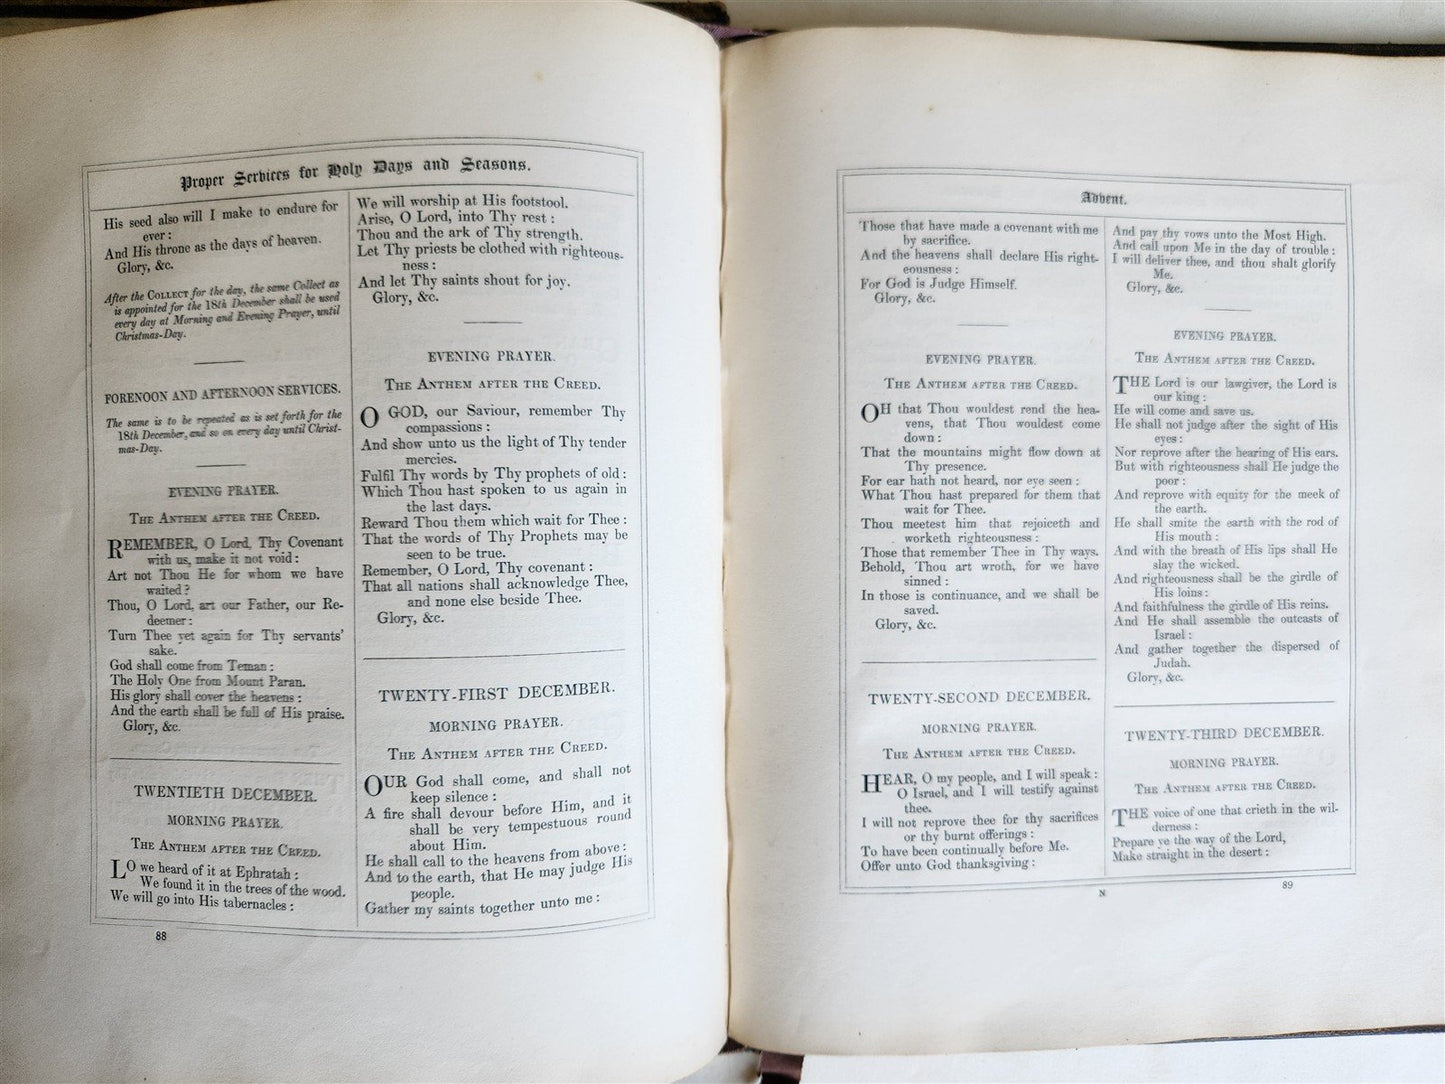 Proper Services for Holy Days and Seasons.
His seed also will I make to endure for
ever:
And His throne as the days of heaven.
Glory, &c.
After the COLLECT for the day, the same Collect as
is appointed for the 18th December shall be used
every day at Morning and Evening Prayer, until
Christmas-Day.
FORENOON AND AFTERNOON SERVICES.
The same is to be repeated as is set forth for the
18th December, and so on every day until Christ-
mas-Day.
EVENING PRAYER.
THE ANTHEM AFTER THE CREED.
REMEMBER, O Lord, Thy Covenant
with us, make it not void:
Art not Thou He for whom we have
waited?
Thou, O Lord, art our Father, our Re-
deemer:
Turn Thee yet again for Thy servants'
sake.
God shall come from Teman:
The Holy One from Mount Paran.
His glory shall cover the heavens:
And the earth shall be full of His praise.
Glory, &c.
TWENTIETH DECEMBER.
MORNING PRAYER.
THE ANTHEM AFTER THE CREED.
LO we heard of it at Ephratah:
We found it in the trees of the wood.
We will go into His tabernacles:
We will worship at His footstool.
Arise, O Lord, into Thy rest:
Thou and the ark of Thy strength.
Let Thy priests be clothed with righteous-
ness:
And let Thy saints shout for joy.
Glory, &c.
EVENING PRAYER.
THE ANTHEM AFTER THE CREED.
O GOD, our Saviour, remember Thy
compassions:
And show unto us the light of Thy tender
mercies.
Fulfil Thy words by Thy prophets of old:
Which Thou hast spoken to us again in
the last days.
Reward Thou them which wait for Thee:
That the words of Thy Prophets may be
seen to be true.
Remember, O Lord, Thy covenant:
That all nations shall acknowledge Thee,
and none else beside Thee.
Glory, &c.
TWENTY-FIRST DECEMBER.
MORNING PRAYER.
THE ANTHEM AFTER THE CREED.
OUR God shall come, and shall not
keep silence:
A fire shall devour before Him, and it
shall be very tempestuous round
about Him.
He shall call to the heavens from above:
And to the earth, that He may judge His
people.
Gather my saints together unto me:
88
Advent.
Those that have made a covenant with me
by sacrifice.
And the heavens shall declare His right-
eousness:
For God is Judge Himself.
Glory, &c.
EVENING PRAYER.
THE ANTHEM AFTER THE CREED.
OH that Thou wouldest rend the hea-
vens, that Thou wouldest come
down:
That the mountains might flow down at
Thy presence.
For ear hath not heard, nor eye seen:
What Thou hast prepared for them that
wait for Thee.
Thou meetest him that rejoiceth and
worketh righteousness:
Those that remember Thee in Thy ways.
Behold, Thou art wroth, for we have
sinned:
In those is continuance, and we shall be
saved.
Glory, &c.
TWENTY-SECOND DECEMBER.
MORNING PRAYER.
THE ANTHEM AFTER THE CREED.
HEAR, O my people, and I will speak:
O Israel, and I will testify against
thee.
I will not reprove thee for thy sacrifices
or thy burnt offerings:
To have been continually before Me.
Offer unto God thanksgiving:
And pay thy vows unto the Most High.
And call upon Me in the day of trouble:
I will deliver thee, and thou shalt glorify
Me.
Glory, &c.
EVENING PRAYER.
THE ANTHEM AFTER THE CREED.
THE Lord is our lawgiver, the Lord is
our king:
He will come and save us.
He shall not judge after the sight of His
eyes:
Nor reprove after the hearing of His ears.
But with righteousness shall He judge the
poor:
And reprove with equity for the meek of
the earth.
He shall smite the earth with the rod of
His mouth:
And with the breath of His lips shall He
slay the wicked.
And righteousness shall be the girdle of
His loins:
And faithfulness the girdle of His reins.
And He shall assemble the outcasts of
Israel:
And gather together the dispersed of
Judah.
Glory, &c.
TWENTY-THIRD DECEMBER.
MORNING PRAYER.
THE ANTHEM AFTER THE CREED.
THE voice of one that crieth in the wil-
derness:
Prepare ye the way of the Lord,
Make straight in the desert:
N
89